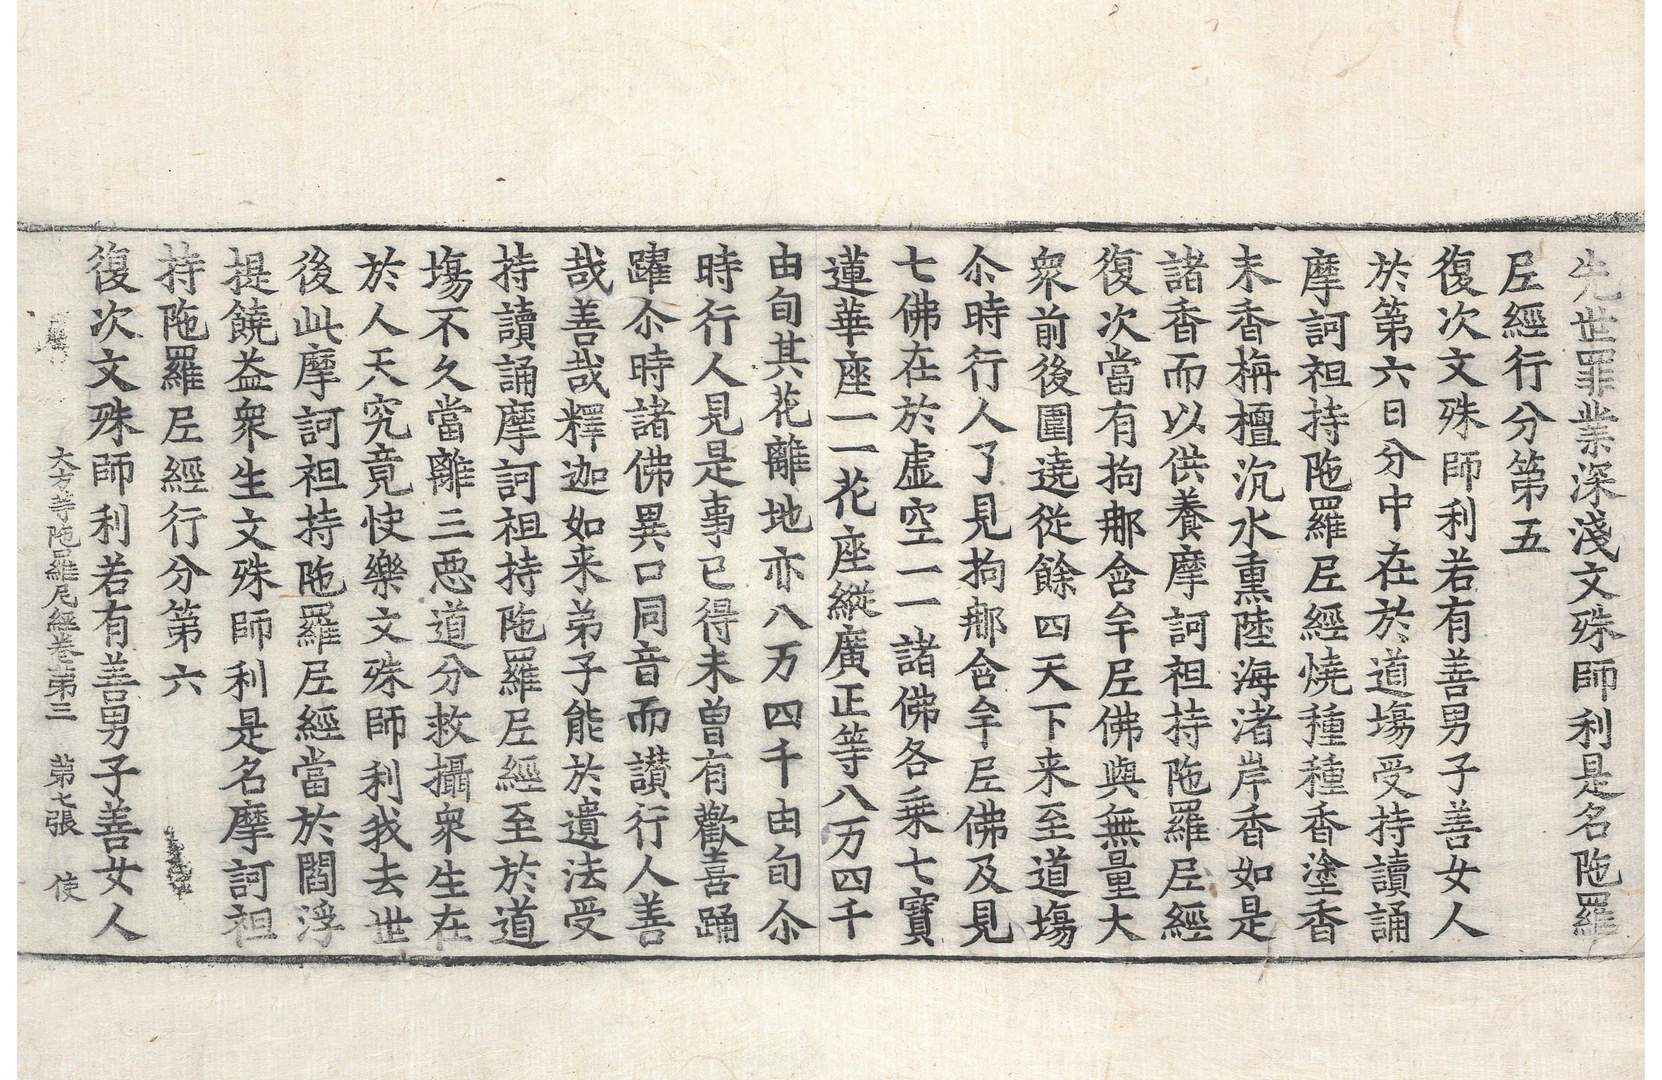 先世罪業深淺文殊師利是名陁羅
𡰱經行分第五
復次文殊師利若有善男子善女人
於第六日分中在於道塲受持讀誦
摩訶袒持陁羅𡰱經燒種種香塗香
末香栴檀沉水熏陸海渚岸香如是
諸香而以供養摩訶袒持陁羅𡰱經
復次當有拘𨚗含牟𡰱佛與無量大
衆前後圍遶從餘四天下来至道塲
尒時行人了見拘𨚗含牟𡰱佛及見
七佛在於虛空一一諸佛各乗七寶
蓮華座一一花座縱廣正等八万四千
由旬其花離地亦八万四千由旬尒
時行人見是事已得未曽有歡喜踊
躍尒時諸佛異口同音而讃行人善
哉善哉釋迦如来弟子能於遺法受
持讀誦摩訶袒持陁羅𡰱經至於道
塲不久當離三惡道分救攝衆生在
於人天究竟快樂文殊師利我去世
後此摩訶袒持陁羅𡰱經當於閻浮
提饒益衆生文殊師利是名摩訶袒
持陁羅𡰱經行分第六
復次文殊師利若有善男子善女人
大方等陁羅尼經卷苐三　苐七張　使